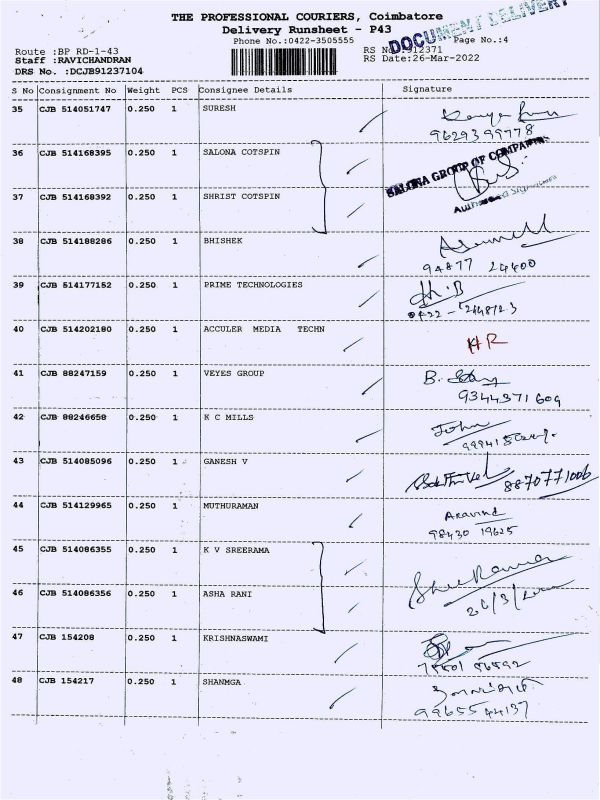 THE PROFESSIONAL COURIERS, Coimbatore
DOCUMENT DELIVERY
Delivery Runsheet - P43
Phone No.:0422-3505555 Page No.:4
Route :BP RD-1-43 RS No.:912371
Staff :RAVICHANDRAN RS Date:26-Mar-2022
DRS No. :DCJB91237104
S No Consignment No Weight PCS Consignee Details Signature
35 CJB 514051747 0.250 1 SURESH
9629399778
36 CJB 514168395 0.250 1 SALONA COTSPIN
SALONA GROUP OF COMPANIES
37 CJB 514168392 0.250 1 SHRIST COTSPIN
38 CJB 514188286 0.250 1 BHISHEK
94877 24400
39 CJB 514177152 0.250 1 PRIME TECHNOLOGIES
40 CJB 514202180 0.250 1 ACCULER MEDIA TECHN
HR
41 CJB 88247159 0.250 1 VEYES GROUP B.
9344371609
42 CJB 88246658 0.250 1 K C MILLS John
43 CJB 514085096 0.250 1 GANESH V
8870771006
44 CJB 514129965 0.250 1 MUTHURAMAN Aravind
98430 19625
45 CJB 514086355 0.250 1 K V SREERAMA
46 CJB 514086356 0.250 1 ASHA RANI
47 CJB 154208 0.250 1 KRISHNASWAMI
48 CJB 154217 0.250 1 SHANMGA
9965544137